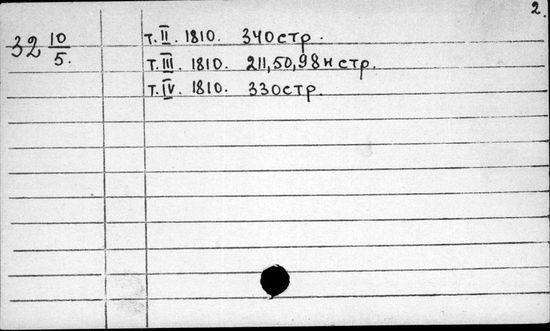 2.
32 10/5.
т. II. 1810. 340 стр.
т. III. 1810. 211, 50, 98 н стр.
т. IV. 1810. 330 стр.